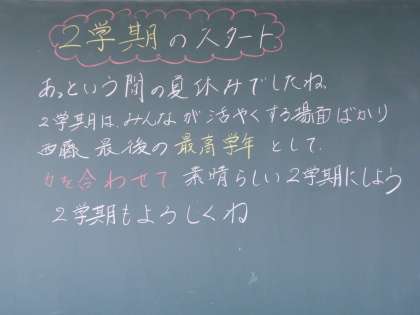 2学期のスタート
あっという間の夏休みでしたね。
2学期は、みんなが活やくする場面ばかり
西藤最後の最高学年として、
力を合わせて素晴らしい2学期にしよう
2学期もよろしくね